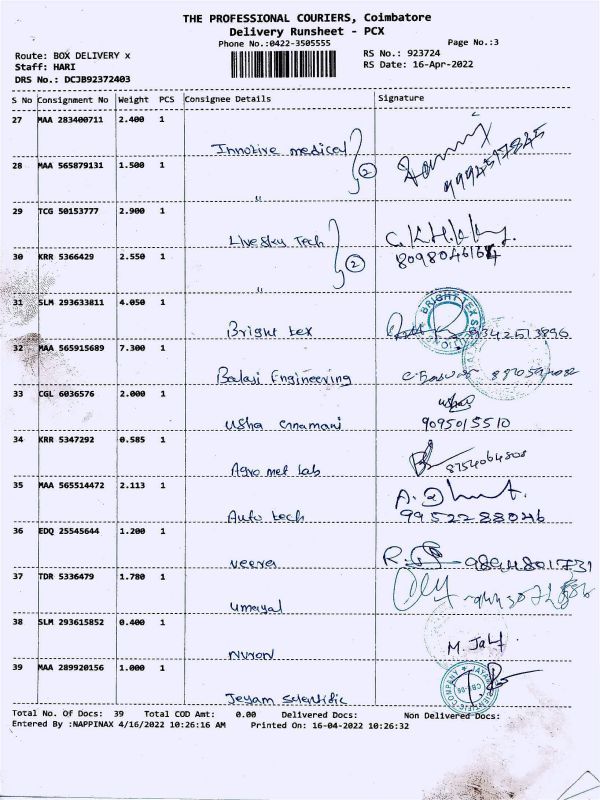 THE PROFESSIONAL COURIERS, Coimbatore
Delivery Runsheet - PCX
Phone No.:0422-3505555
Page No.:3
Route: BOX DELIVERY x
Staff: HARI
DRS No.: DCJB92372403
RS No.: 923724
RS Date: 16-Apr-2022
S No Consignment No Weight PCS Consignee Details Signature
27 MAA 283400711 2.400 1
Innotive medical 2
9994517845
28 MAA 565879131 1.500 1
"
29 TCG 50153777 2.900 1
Livesky Tech 2
30 KRR 5366429 2.550 1
"
31 SLM 293633811 4.050 1
Bright tex
BRIGHT TEX
9342513896
32 MAA 565915689 7.300 1
Balaji Engineering
33 CGL 6036576 2.000 1
usha cnnamani
usha
9095015510
34 KRR 5347292 0.585 1
Agro met lab
8754064808
35 MAA 565514472 2.113 1
Auto tech
9952288046
36 EDQ 25545644 1.200 1
veera
9894801731
37 TDR 5336479 1.780 1
umayal
38 SLM 293615852 0.400 1
M. Jaly
39 MAA 289920156 1.000 1
Jeyam scientific
Total No. Of Docs: 39 Total COD Amt: 0.00 Delivered Docs: Non Delivered Docs:
Entered By :NAPPINAX 4/16/2022 10:26:16 AM Printed On: 16-04-2022 10:26:32